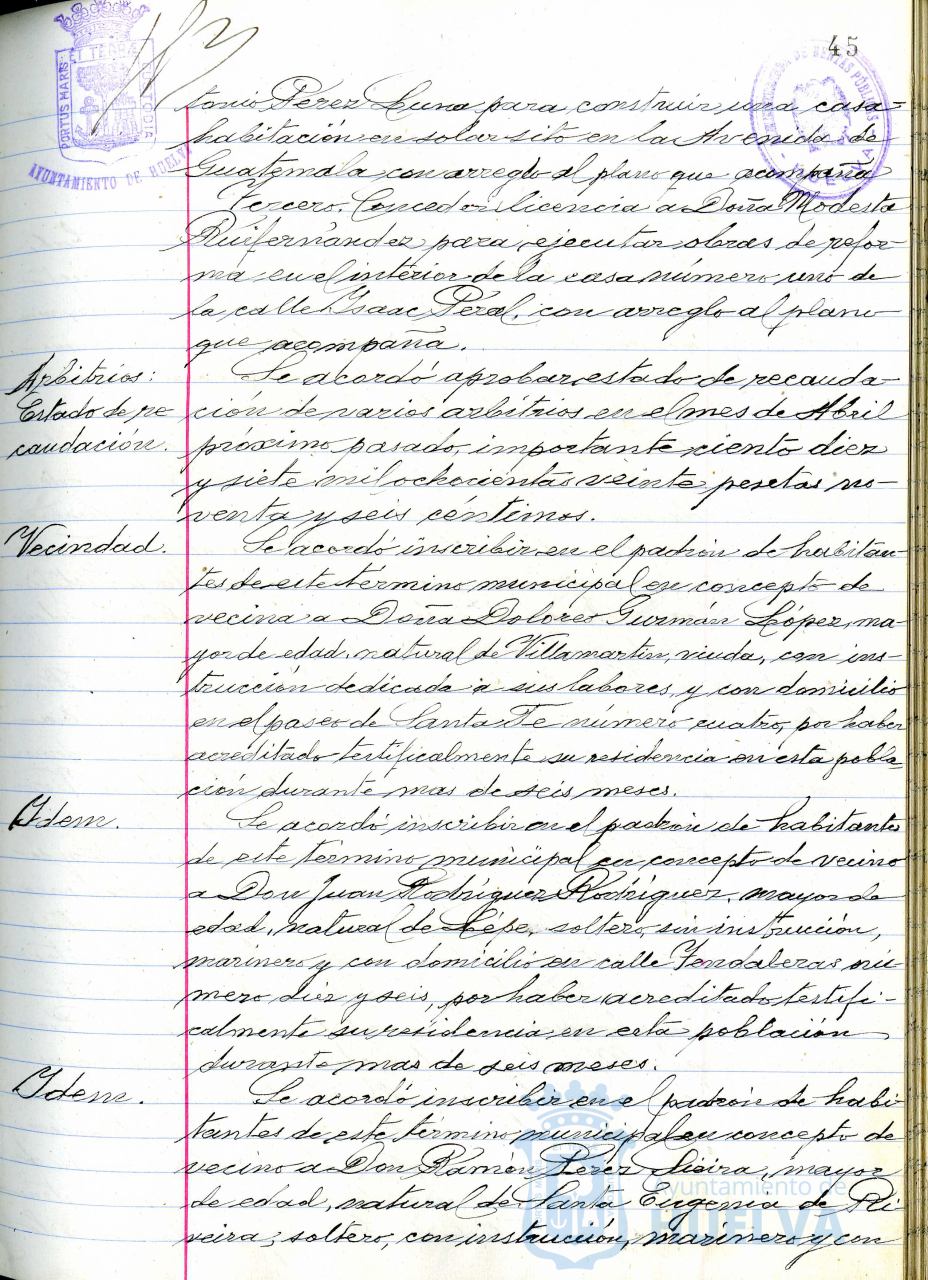 45
PORTUS MARIS ET TERRÆ CUSTODIA
AYUNTAMIENTO DE HUELVA
tonio Pérez Luna para construir una casa=
habitación en solar sito en la Avenida de
Guatemala con arreglo al plano que acompaña
Tercero. Conceder licencia a Doña Modesta
Ruifernández para ejecutar obras de refor-
ma en el interior de la casa número uno de
la calle Isaac Peral, con arreglo al plano
que acompaña.
Arbitrios:
Estado de re
caudación.
Se acordó aprobar estado de recauda-
ción de varios arbitrios en el mes de Abril
próximo pasado, importante ciento diez
y siete mil ochocientas veinte pesetas no-
venta y seis céntimos.
Vecindad.
Se acordó inscribir en el padrón de habitan-
tes de este término municipal en concepto de
vecina a Doña Dolores Guzmán López, ma-
yor de edad, natural de Villamartin, viuda, con ins-
trucción dedicada a sus labores, y con domicilio
en el paseo de Santa Fe número cuatro, por haber
acreditado testificalmente su residencia en esta pobla-
ción durante mas de seis meses.
Idem.
Se acordó inscribir en el padrón de habitantes
de este término municipal en concepto de vecino
a Don Juan Rodríguez Rodríguez, mayor de
edad, natural de Lépe, soltero, sin instrucción,
marinero y con domicilio en calle Fendaleras nú-
mero diez y seis, por haber acreditado testifi-
calmente su residencia en esta población
durante mas de seis meses.
Idem.
Se acordó inscribir en el padrón de habi-
tantes de este término municipal en concepto de
vecino a Don Ramón Pérez Sieira, mayor
de edad, natural de Santa Eugenia de Ri-
veira, soltero, con instrucción, marinero y con
Ayuntamiento de
HUELVA